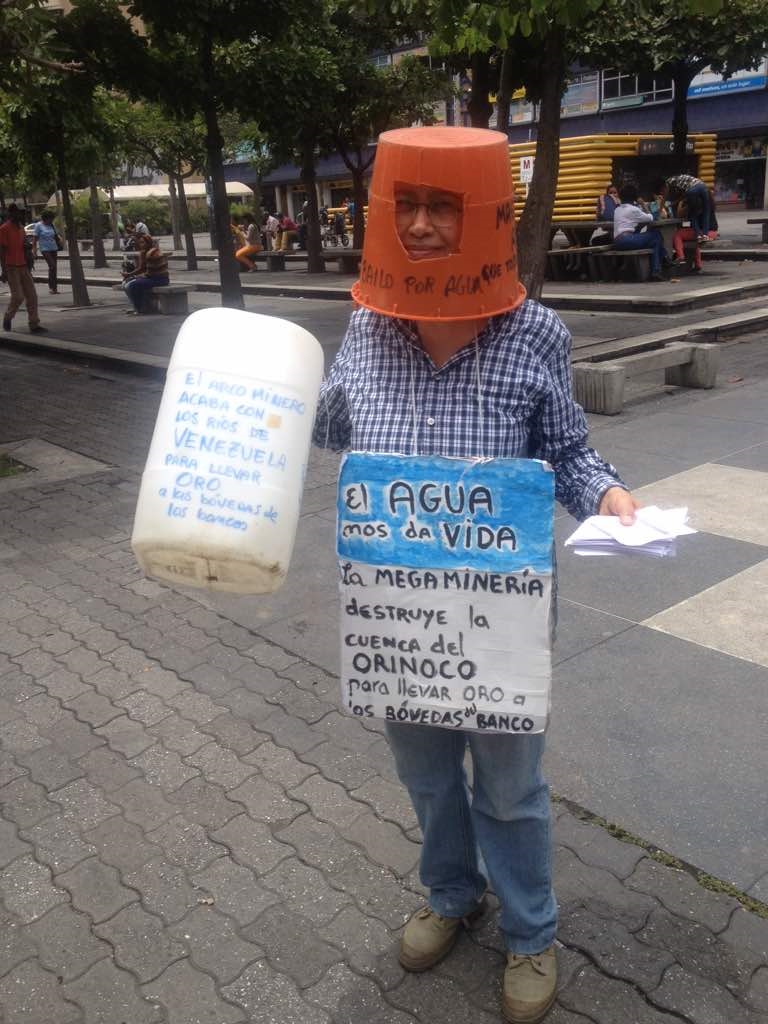 BAILO POR AGUA QUE
El ARCO MINERO
ACABA CON
LOS RIOS DE
VENEZUELA
PARA LLEVAR
ORO
a las BÓVEDAS de
los bancos
El AGUA
nos da VIDA
la MEGAMINERÍA
DESTRUYE la
CUENCA del
ORINOCO
para llevar ORO a
las BÓVEDAS del BANCO
M